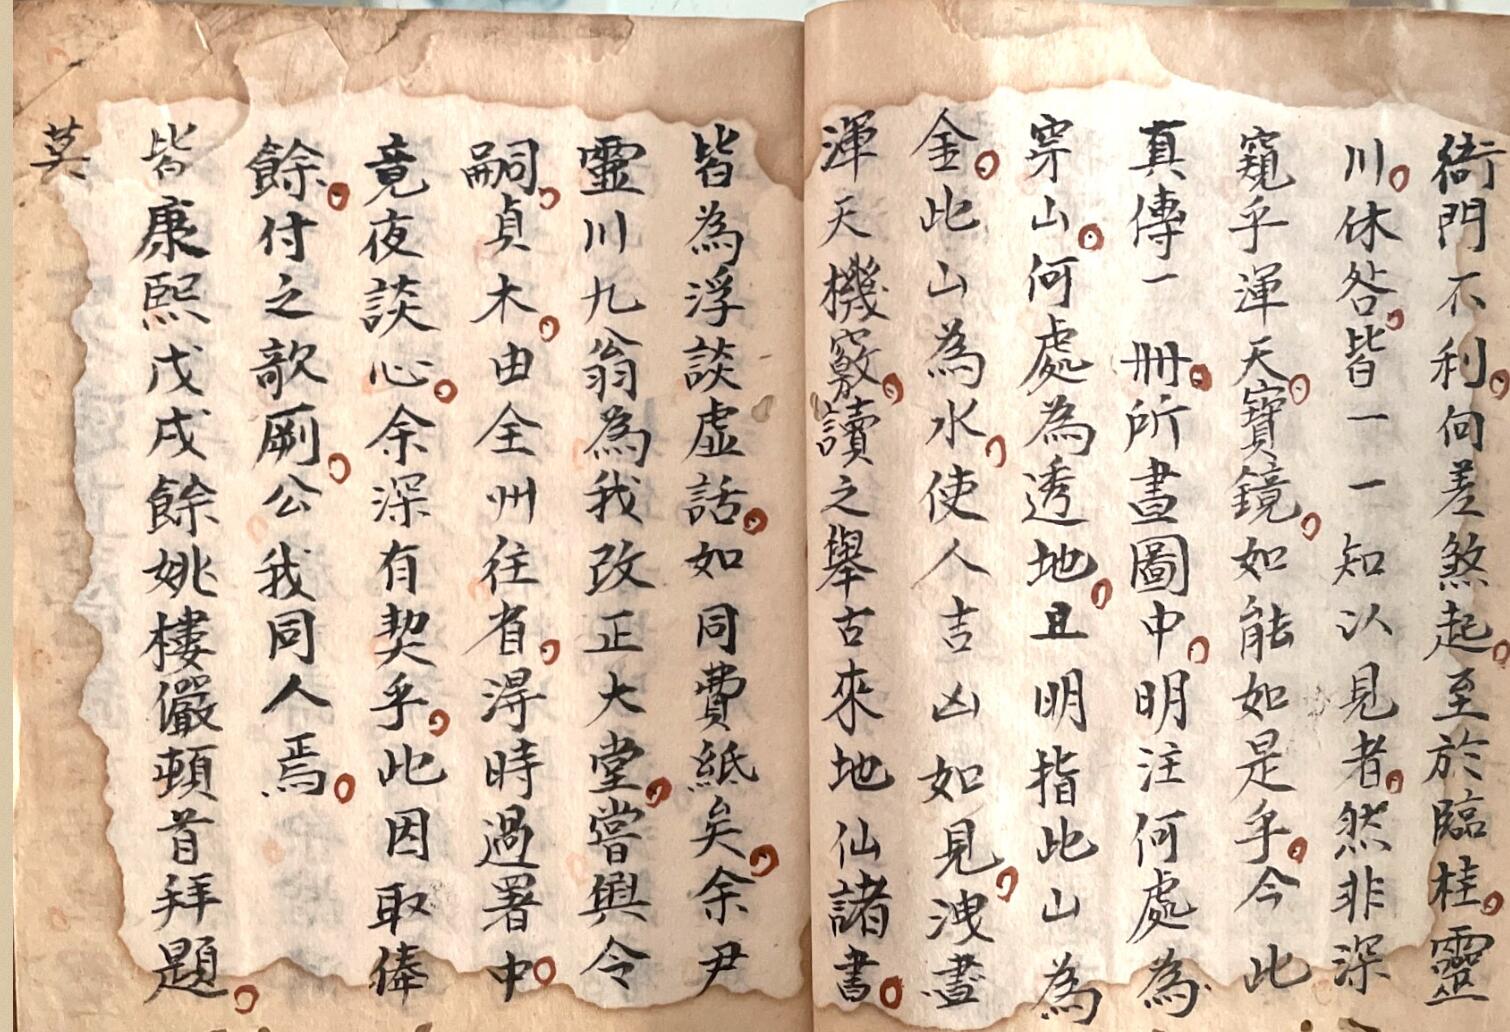 衙門不利向差煞起至於臨桂靈
川休咎皆一一知以見者然非深
窺乎渾天寶鏡如能如是乎今此
真傳一冊所畫圖中明注何處為
穿山何處為透地且明指此山為
金此山為水使人吉凶如見洩盡
渾天機竅讀之舉古來地仙諸書
皆為浮談虛話如同費紙矣余尹
靈川九翁為我改正大堂嘗與令
嗣貞木由全州往省淂時過署中
竟夜談心余深有契乎此因取俸
餘付之歌劂公我同人焉
皆康熙戊戌餘姚樓儼頓首拜題
莫